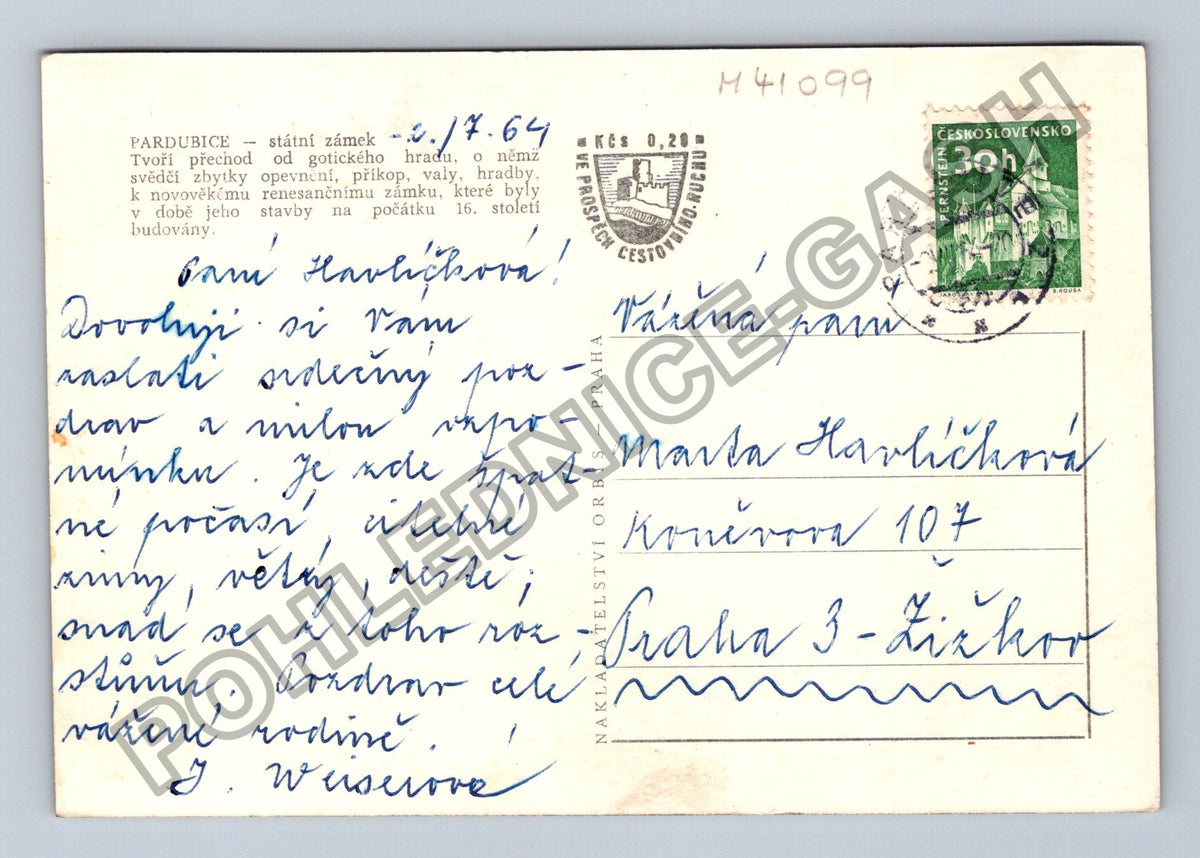 M 41099
PARDUBICE — státní zámek
-2./7.64
Tvoří přechod od gotického hradu, o němž
svědčí zbytky opevnění, příkop, valy, hradby,
k novověkému renesančnímu zámku, které byly
v době jeho stavby na počátku 16. století
budovány.
Kčs 0,20
VE PROSPĚCH CESTOVNÍHO RUCHU
ČESKOSLOVENSKO
30h
PERNŠTEJN
JAROSLAV
B. HOUSA
Paní Havlíčková!
Dovoluji si Vám
zaslati srdečný poz-
drav a milou vzpo-
mínku. Je zde špat-
né počasí, citelné
zimy, větry, deště;
snad se z toho roz-
stůňu. Pozdrav celé
vážené rodině.
J. Weiserova
Vážená paní
Marta Havlíčková
Koněvova 107
Praha 3 - Žižkov
NAKLADATELSTVÍ ORBIS — PRAHA
POHLEDNICE-GASH